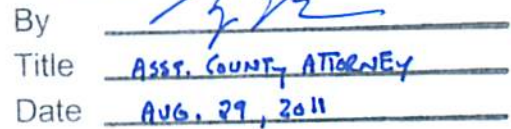 By
Title ASST. COUNTY ATTORNEY
Date AUG. 29, 2011